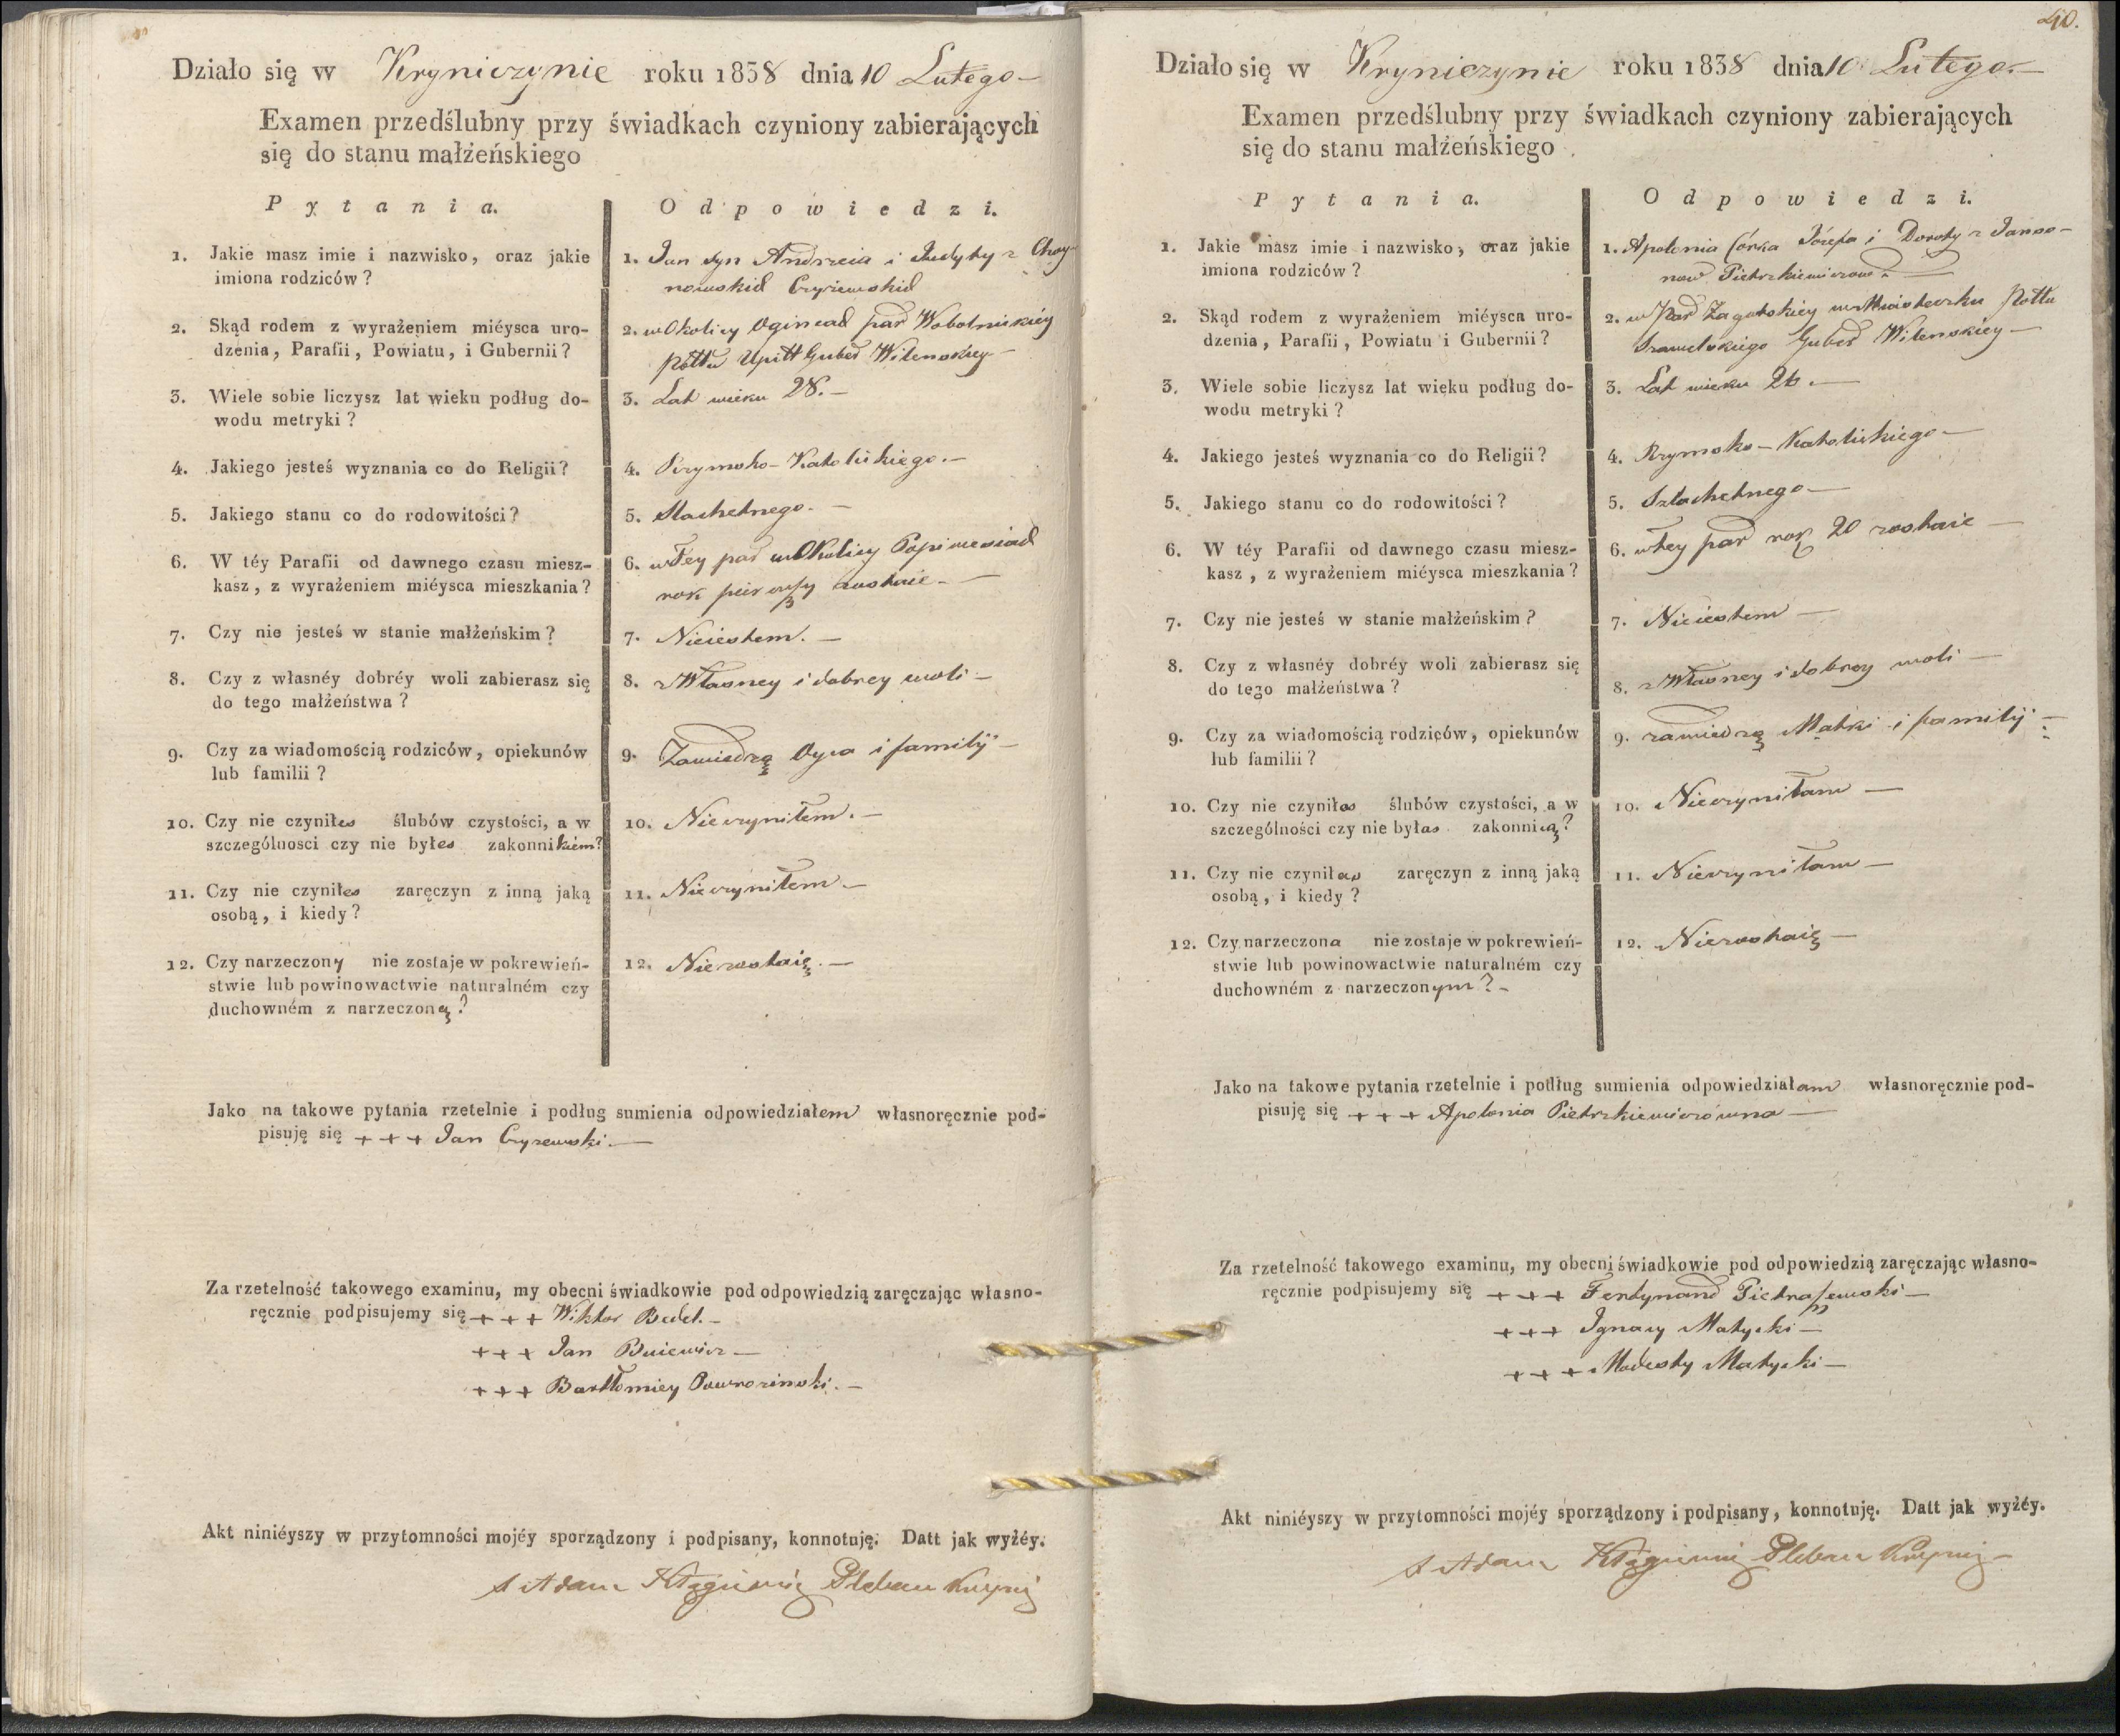 Działo się w Kryniczynie roku 1838 dnia 10 Lutego
Examen przedślubny przy świadkach czyniony zabierających
się do stanu małżeńskiego
Pytania. Odpowiedzi.
1. Jakie masz imie i nazwisko, oraz jakie
imiona rodziców?
1. Jan syn Andrzeia i Judyty z Choy-
nowskich Czyżewskich
2. Skąd rodem z wyrażeniem miéysca uro-
dzenia, Parafii, Powiatu, i Gubernii?
2. w OkolicyOgincach par Wobolnickiey
Pottu Upitt Guber Wilenskiey
3. Wiele sobie liczysz lat wieku podług do-
wodu metryki?
3. Lat wieku 28.
4. Jakiego jesteś wyznania co do Religii?
4. Rzymsko-Katolickiego.
5. Jakiego stanu co do rodowitości?
5. Slachetnego.
6. W téy Parafii od dawnego czasu miesz-
kasz, z wyrażeniem miéysca mieszkania?
6. w Tey par w Okolicy
rok pierwszy zostaie
7. Czy nie jesteś w stanie małżeńskim?
7. Nieiestem.
8. Czy z własnéy dobréy woli zabierasz się
do tego małżeństwa?
8. z Własney i dobrey woli
9. Czy za wiadomością rodziców, opiekunów
lub familii?
9. Zawiedzą Oyca i familij
10. Czy nie czyniłes ślubów czystości, a w
szczególnosci czy nie byłes zakonnikiem?
10. Nieczyniłem.
11. Czy nie czyniłes zaręczyn z inną jaką
osobą, i kiedy?
11. Nieczyniłem
12. Czy narzeczony nie zostaje w pokrewień-
stwie lub powinowactwie naturalném czy
duchowném z narzeczoną?
12. Niezostaię.
Jako na takowe pytania rzetelnie i podług sumienia odpowiedziałem własnoręcznie pod-
pisuję się +++ Jan Czyżewski.
Za rzetelność takowego examinu, my obecni świadkowie pod odpowiedzią zaręczając własno-
ręcznie podpisujemy się +++ Wiktor
+++ Jan
+++ Bartłomiey
Akt niniéyszy w przytomności mojéy sporządzony i podpisany, konnotuję. Datt jak wyżéy.
X Adam Pleban
40.
Działo się w Kryniczynie roku 1838 dnia 10 Lutego.
Examen przedślubny przy świadkach czyniony zabierających
się do stanu małżeńskiego
Pytania. Odpowiedzi.
1. Jakie masz imie i nazwisko, oraz jakie
imiona rodziców?
1. Apolonia Córka Józefa i Doroty z Janso-
now Pietrzkiewiczow.
2. Skąd rodem z wyrażeniem miéysca uro-
dzenia, Parafii, Powiatu i Gubernii?
2. w Par w Miasteczku Pottu
Szawelskiego Guber Wilenskiey
3. Wiele sobie liczysz lat wieku podług do-
wodu metryki?
3. Lat wieku 26.
4. Jakiego jesteś wyznania co do Religii?
4. Rzymsko-Katolickiego
5. Jakiego stanu co do rodowitości?
5. Szlachetnego
6. W téy Parafii od dawnego czasu miesz-
kasz, z wyrażeniem miéysca mieszkania?
6. w tey par rok 20 zostaie
7. Czy nie jesteś w stanie małżeńskim?
7. Nieiestem
8. Czy z własnéy dobréy woli zabierasz się
do tego małżeństwa?
8. z Własney i dobrey woli
9. Czy za wiadomością rodziców, opiekunów
lub familii?
9. zawiedzą Matki i familij
10. Czy nie czyniłas ślubów czystości, a w
szczególności czy nie byłas zakonnicą?
10. Nieczyniłam
11. Czy nie czyniłas zaręczyn z inną jaką
osobą, i kiedy?
11. Nieczyniłam
12. Czy narzeczona nie zostaje w pokrewień-
stwie lub powinowactwie naturalném czy
duchowném z narzeczonym?
12. Niezostaię
Jako na takowe pytania rzetelnie i podług sumienia odpowiedziałam własnoręcznie pod-
pisuję się +++ Apolonia Pietrzkiewiczowna
Za rzetelność takowego examinu, my obecni świadkowie pod odpowiedzią zaręczając własno-
ręcznie podpisujemy się +++ Ferdynand Pietraszewski
+++ Ignacy Matycki
+++ Modesty Matycki
Akt niniéyszy w przytomności mojéy sporządzony i podpisany, konnotuję. Datt jak wyżéy.
X Adam Pleban